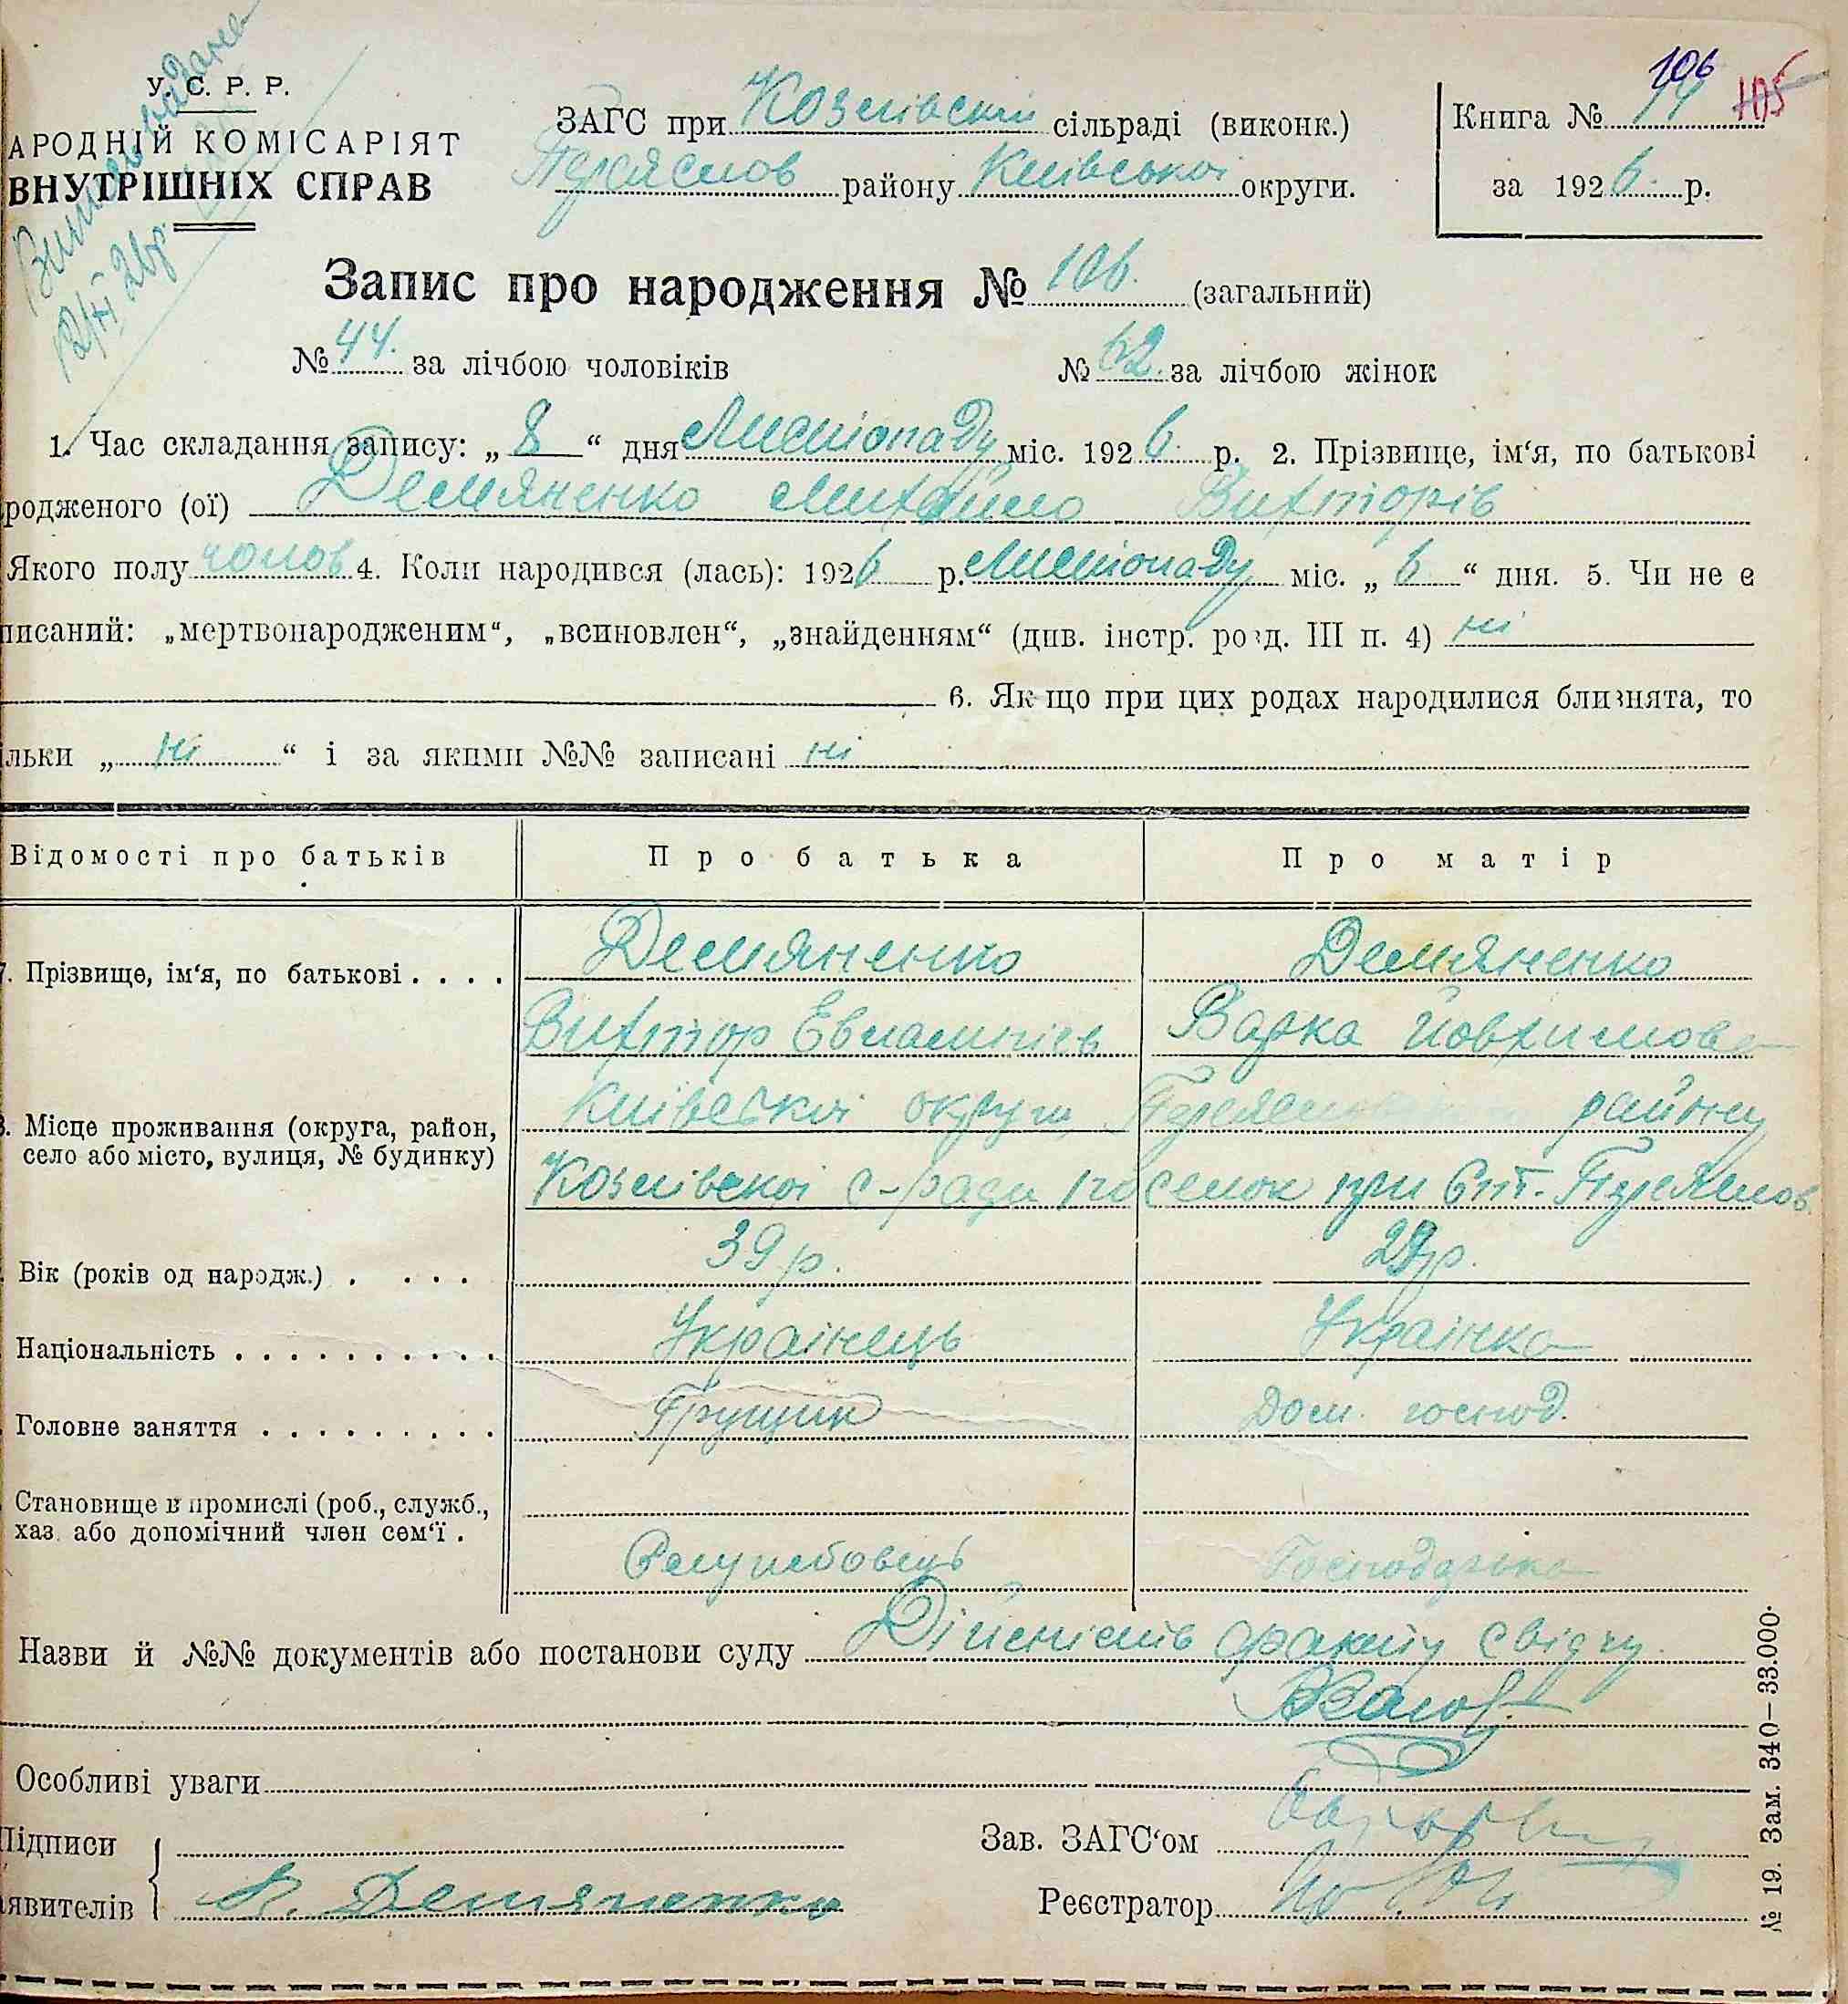 У. С. Р. Р.
АРОДНІЙ КОМІСАРІЯТ
ВНУТРІШНІХ СПРАВ
ЗАГС при Козлівській сільраді (виконк.)
Переяслов району Київської округи.
106
Книга № 105
за 1926 р.
Запис про народження № 106. (загальний)
№ 44. за лічбою чоловіків № 62. за лічбою жінок
1. Час складання запису: „ 8 “ дня Листопаду міс. 1926 р. 2. Прізвище, ім‘я, по батькові
родженого (ої) Демяненко Михайло Вихторів
Якого полу чолов 4. Коли народився (лась): 1926 р. Листопаду міс. „ 6 “ дня. 5. Чи не є
писаний: „мертвонародженим“, „всиновлен“, „знайденням“ (див. інстр. розд. III п. 4) ні
6. Якщо при цих родах народилися близнята, то
ільки „ ні “ і за якими №№ записані ні
Відомості про батьків Про батька Про матір
7. Прізвище, ім‘я, по батькові . . . . Демяненко Демяненко
Вихтор Евлампіев Варка Йовхимова
Місце проживання (округа, район, село або місто, вулиця, № будинку) Київської округи, району
Козлівскої с-ради посьолок при Ст. Переяслов
Вік (років од народж.) . . . . 39 р. р.
Національність . . . . . . . . . . Українець Українка
Головне заняття . . . . . . . . . Грущик Дом. господ.
Становище в промислі (роб., служб., хаз. або допомічний член сем‘ї .
Господарка
Назви й №№ документів або постанови суду Дійсність факту свідчу
Особливі уваги
Підписи
явителів Демяненко
Зав. ЗАГС‘ом
Реєстратор
№ 19. Зам. 340—33.000.